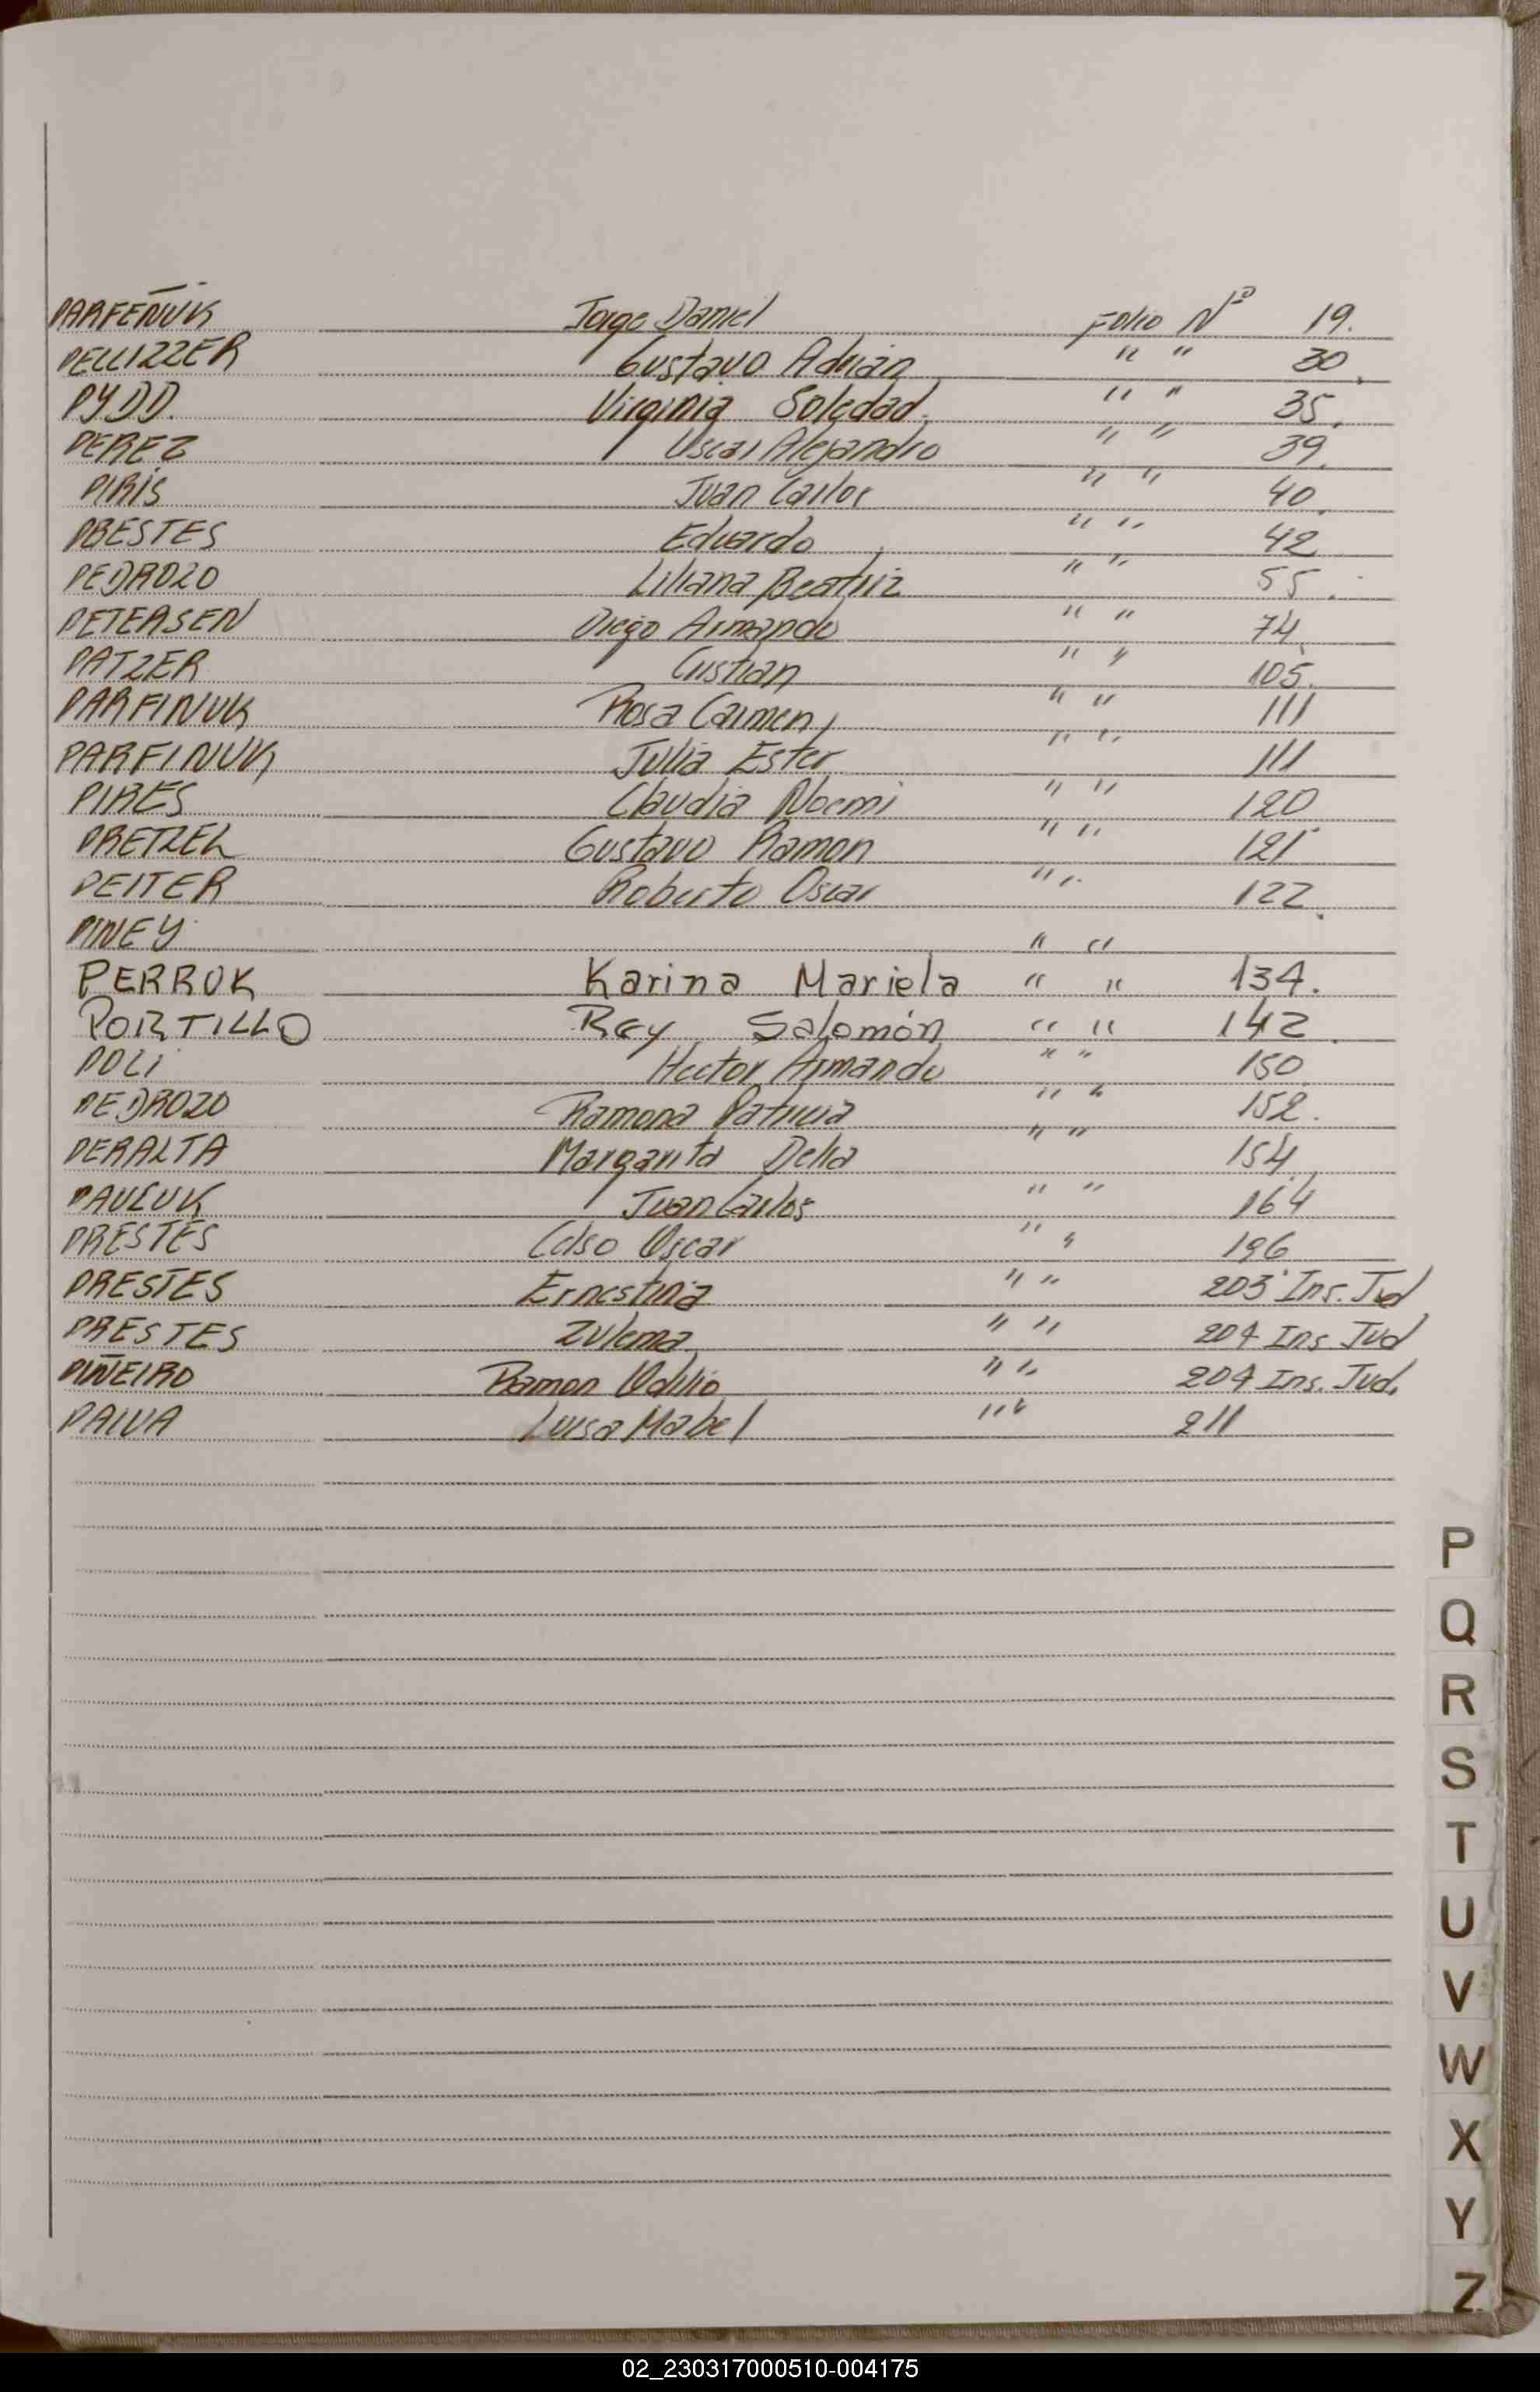 PARFEÑUK Jorge Daniel Folio Nº 19.
PELLIZZER Gustavo Adrián " " 30.
PYDD. Virginia Soledad. " " 35.
PEREZ Oscar Alejandro " " 39.
PIRIS Juan Carlos " " 40.
PRESTES Eduardo " " 42
PEDROZO Liliana Beatriz " " 55.
PETERSEN Diego Armando " " 74
PATZER Cristian " " 105.
PARFINUK Rosa Carmen " " 111
PARFINUK Julia Ester " " 111
PIRES Claudia Noemi " " 120
PRETZEL Gustavo Ramon " " 121
PEITER Roberto Oscar " " 122.
PINEY " "
PERROK Karina Mariela " " 134.
PORTILLO Rey Salomón " " 142.
POLI Hector Armando " " 150
PEDROZO Ramona Patricia " " 152.
PERALTA Margarita Delia " " 154.
PAULUK Juan Carlos " " 164
PRESTES Celso Oscar " " 196
PRESTES Ernestina " " 203 Ins. Jud
PRESTES Zulema " " 204 Ins Jud
PIÑEIRO Ramon Odilio " " 204 Ins. Jud.
PAIVA Luisa Mabel " " 211
P
Q
R
S
T
U
V
W
X
Y
Z
02_230317000510-004175